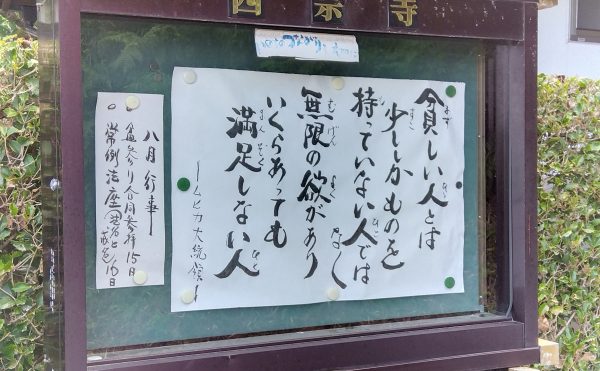 西宗寺
貧しい人とは
少ししかものを
持っていない人では
なく
無限の欲があり
いくらあっても
満足しない人
ームヒカ大統領ー
八月行事
○盆参り合同参拝15日
○常例法座